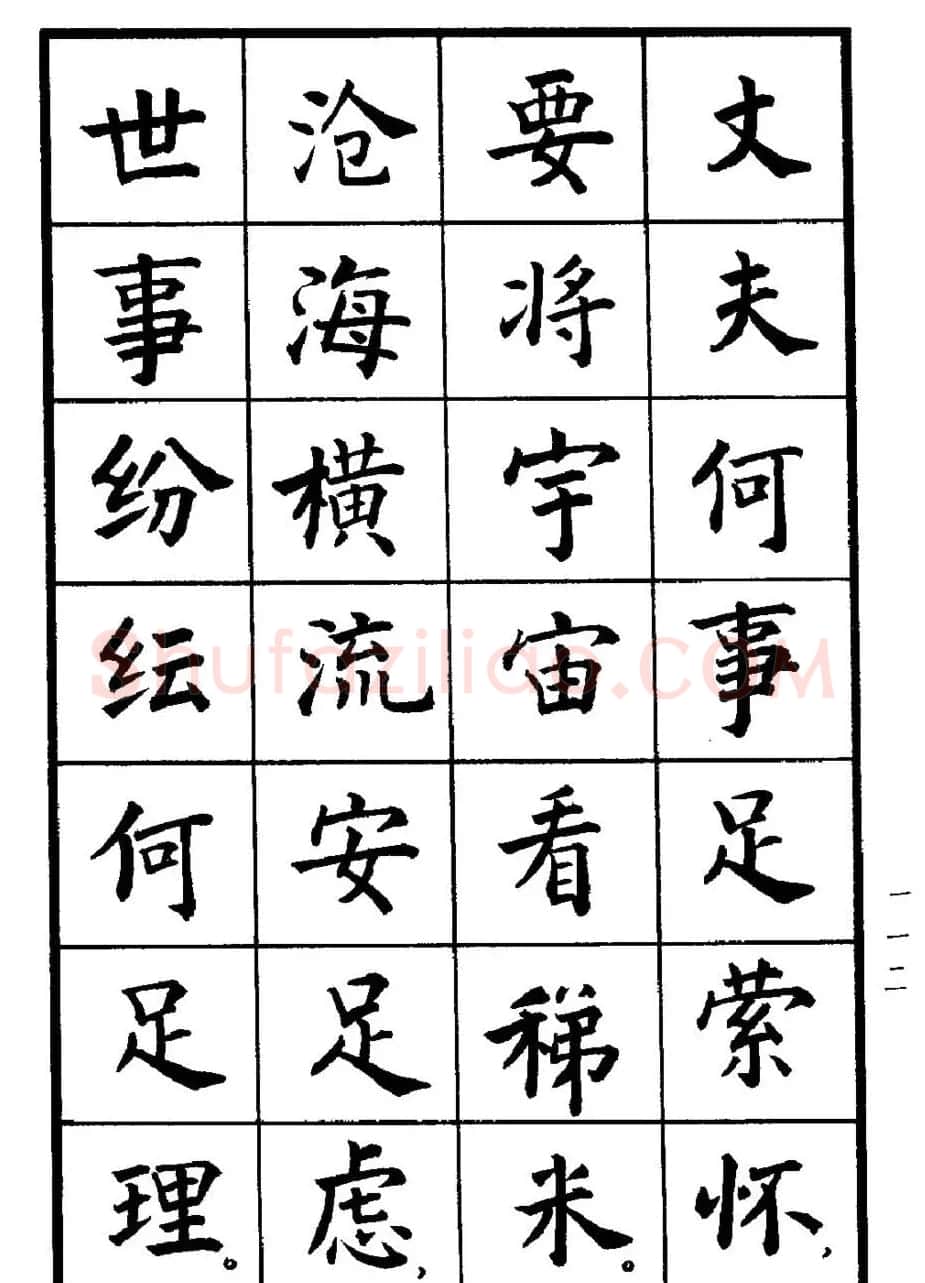 丈夫何事足萦怀，
要将宇宙看稊米。
沧海横流安足虑，
世事纷纭何足理。
一一二
Shufaziliao.com